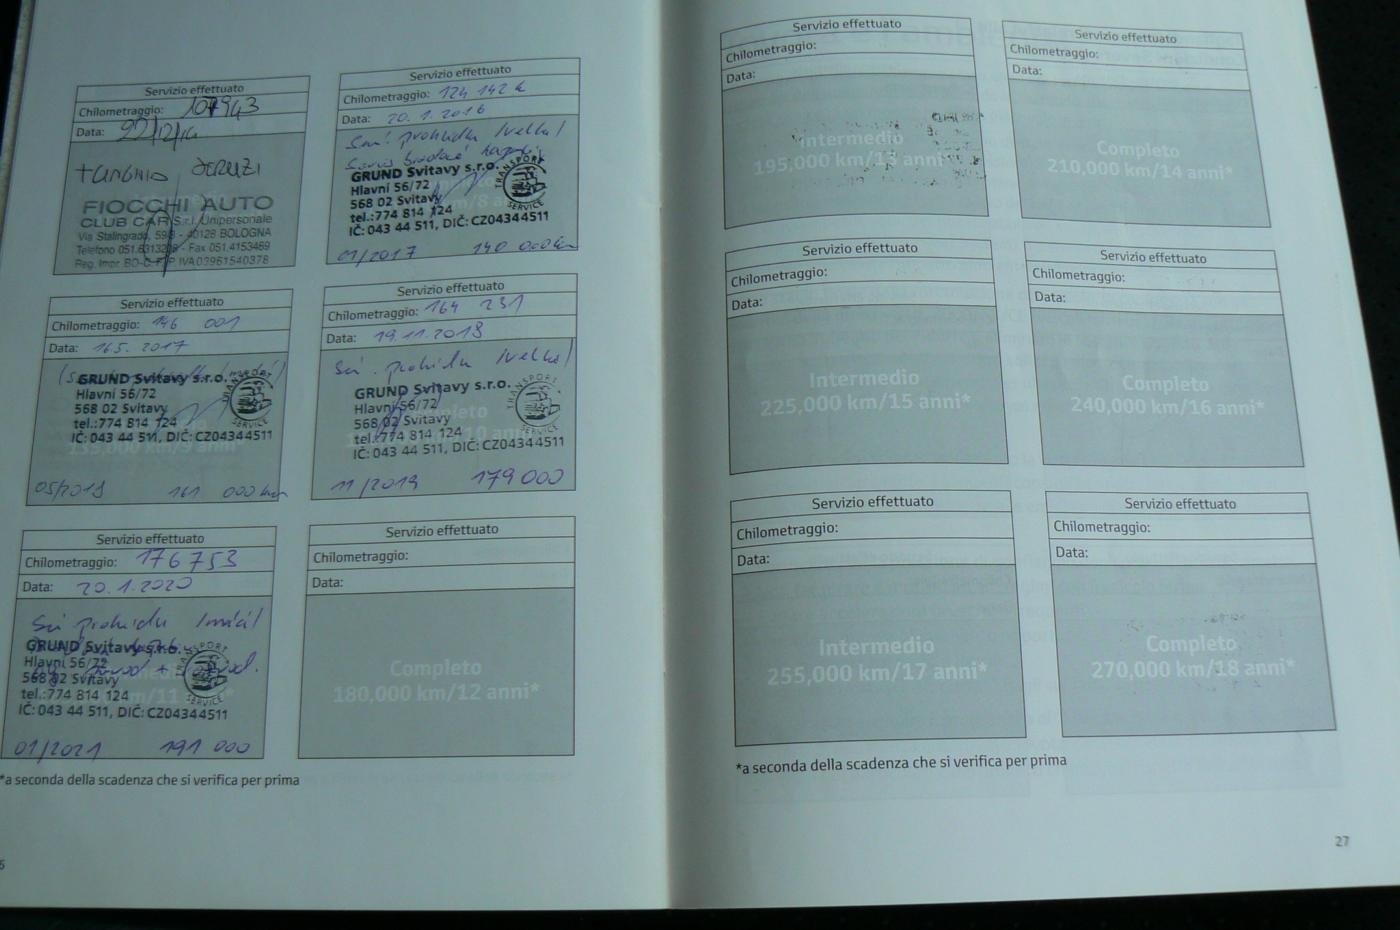 Servizio effettuato
Chilometraggio: 107943
Data: 22/12/14
FIOCCHI AUTO
CLUB CAR S.r.l. Unipersonale
Via Stalingrado, 40128 BOLOGNA
Telefono Fax 051.4153469
Reg. Impr. P.IVA 03961540378
Servizio effettuato
Chilometraggio: 124 142 k
Data: 20. 1. 2016
prohídka /velká/
GRUND Svitavy s.r.o.
Hlavní 56/72
568 02 Svitavy
tel.:774 814 124
IČ: 043 44 511, DIČ: CZ04344511
TRANSPORT
SERVICE
01/2017 140 000 km
Servizio effettuato
Chilometraggio: 146 001
Data: 16.5. 2017
GRUND Svitavy s.r.o.
Hlavní 56/72
568 02 Svitavy
tel.:774 814 124
IČ: 043 44 511, DIČ: CZ04344511
TRANSPORT
SERVICE
05/2018 161 000 km
Servizio effettuato
Chilometraggio: 164 231
Data: 19.11.2018
prohídka /velká/
GRUND Svitavy s.r.o.
Hlavní 56/72
568 02 Svitavy
tel.:774 814 124
IČ: 043 44 511, DIČ: CZ04344511
TRANSPORT
SERVICE
11/2019 179 000
Servizio effettuato
Chilometraggio: 176753
Data: 20.1.2020
prohídka /malá/
GRUND Svitavy s.r.o.
Hlavní 56/72
568 02 Svitavy
tel.:774 814 124
IČ: 043 44 511, DIČ: CZ04344511
TRANSPORT
SERVICE
01/2021 191 000
Servizio effettuato
Chilometraggio:
Data:
Completo
180,000 km/12 anni*
*a seconda della scadenza che si verifica per prima
Servizio effettuato
Chilometraggio:
Data:
Intermedio
195,000 km/13 anni*
Servizio effettuato
Chilometraggio:
Data:
Completo
210,000 km/14 anni*
Servizio effettuato
Chilometraggio:
Data:
Intermedio
225,000 km/15 anni*
Servizio effettuato
Chilometraggio:
Data:
Completo
240,000 km/16 anni*
Servizio effettuato
Chilometraggio:
Data:
Intermedio
255,000 km/17 anni*
Servizio effettuato
Chilometraggio:
Data:
Completo
270,000 km/18 anni*
*a seconda della scadenza che si verifica per prima
27